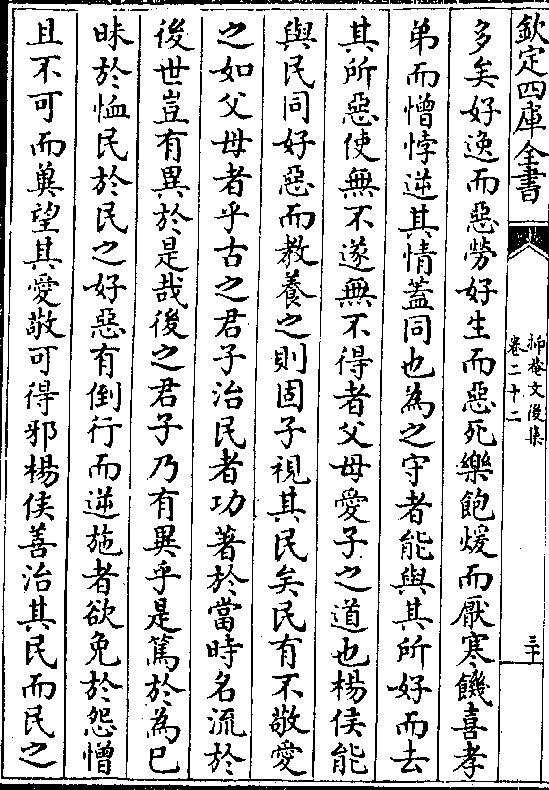 欽定四庫全書
抑菴文後集
卷二十二
三十
多矣好逸而惡勞好生而惡死樂飽煖而厭寒饑喜孝
弟而憎悖逆其情蓋同也為之守者能與其所好而去
其所惡使無不遂無不得者父母愛子之道也楊侯能
與民同好惡而教養之則固子視其民矣民有不敬愛
之如父母者乎古之君子治民者功著於當時名流於
後世豈有異於是哉後之君子乃有異乎是篤於為已
昧於恤民於民之好惡有倒行而逆施者欲免於怨憎
且不可而冀望其愛敬可得邪楊侯善治其民而民之